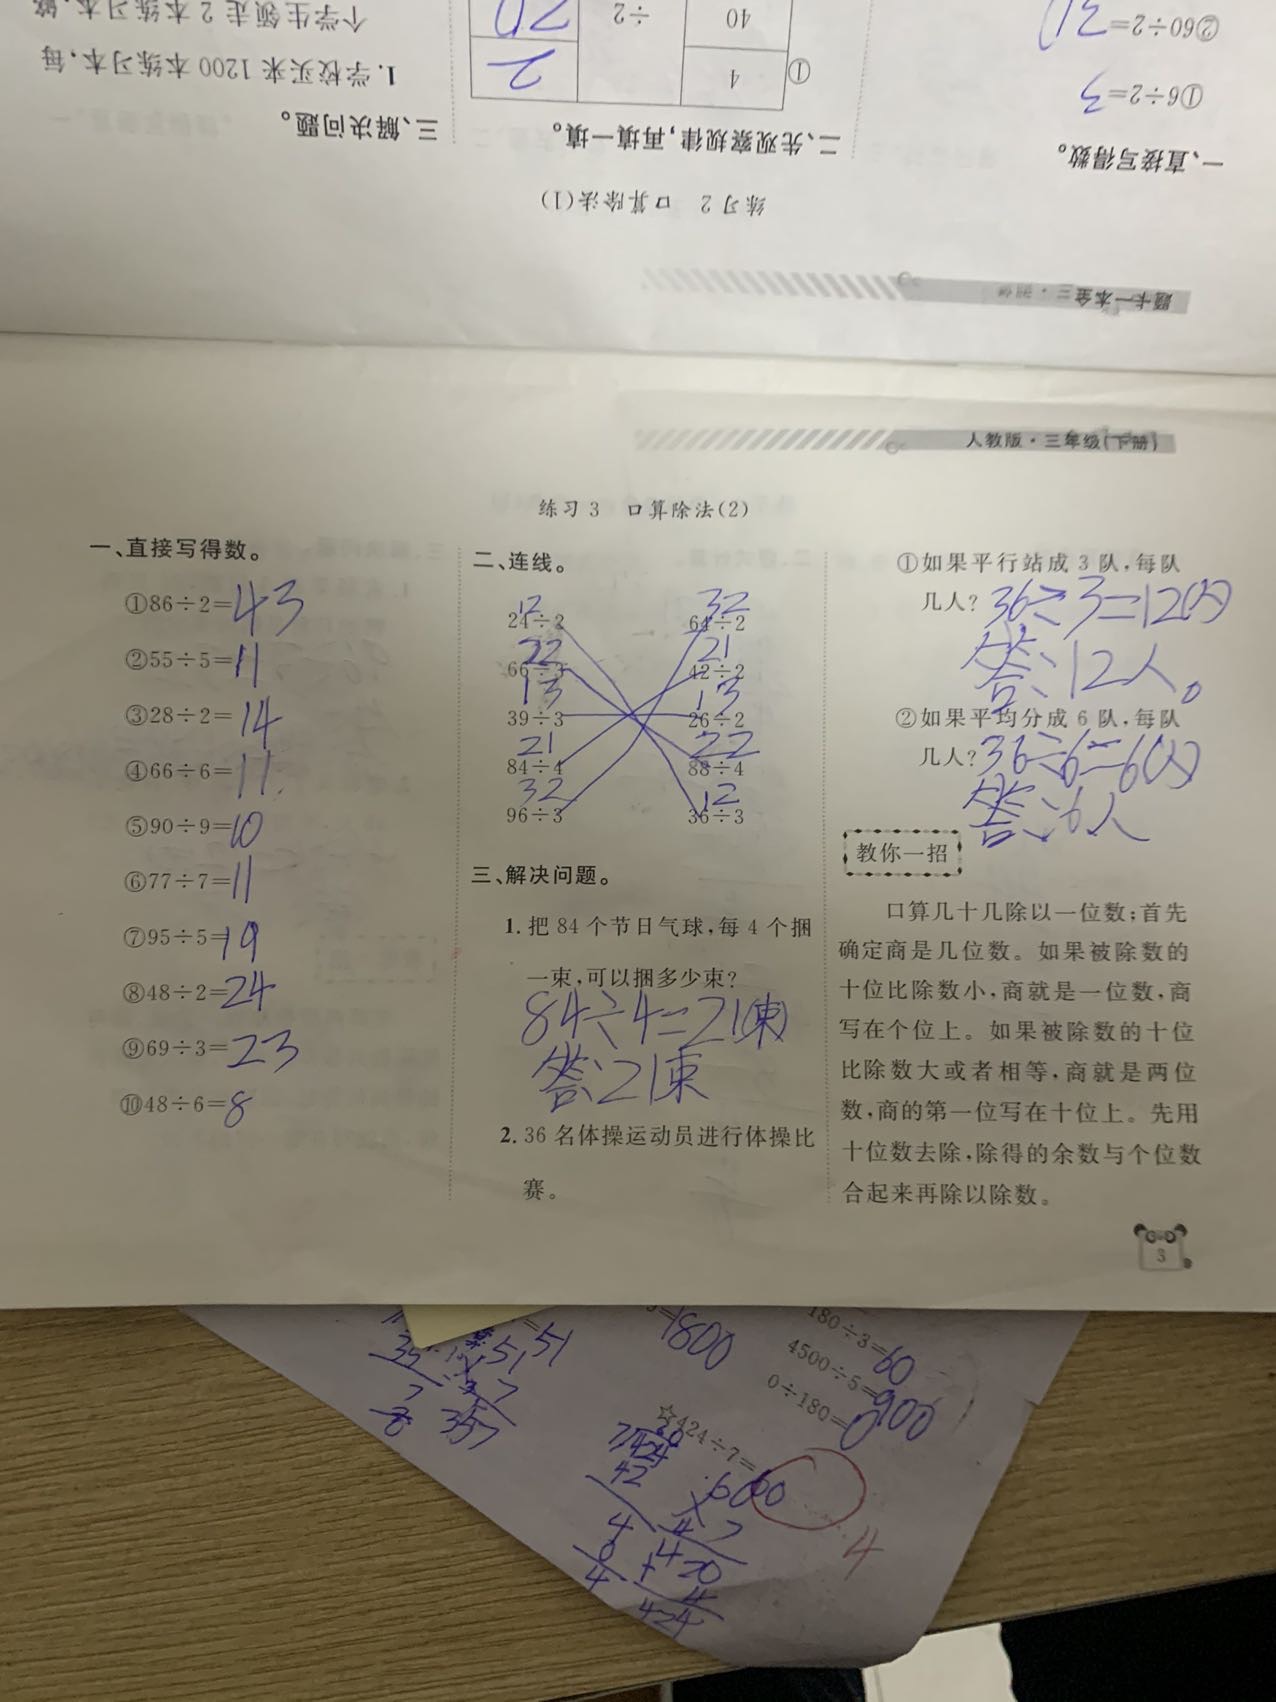 一、直接写得数。
①6÷2=3
②60÷2=30
二、先观察规律,再填一填。
①
4
2
40
÷2
20
三、解决问题。
1.学校买来 1200 本练习本,每
个学生领走 2 本练习本,够
练习 2 口算除法(1)
题卡一本全
人教版·三年级(下册)
练习 3 口算除法(2)
一、直接写得数。
①86÷2=43
②55÷5=11
③28÷2=14
④66÷6=11
⑤90÷9=10
⑥77÷7=11
⑦95÷5=19
⑧48÷2=24
⑨69÷3=23
⑩48÷6=8
二、连线。
12 32
24÷2 64÷2
22 21
66÷3 42÷2
13 13
39÷3 26÷2
21 22
84÷4 88÷4
32 12
96÷3 36÷3
三、解决问题。
1. 把 84 个节日气球,每 4 个捆
一束,可以捆多少束?
84÷4=21(束)
答:21束
2. 36 名体操运动员进行体操比
赛。
①如果平行站成 3 队,每队
几人? 36÷3=12(人)
答:12人。
②如果平均分成 6 队,每队
几人? 36÷6=6(人)
答:6人
教你一招
口算几十几除以一位数;首先
确定商是几位数。如果被除数的
十位比除数小,商就是一位数,商
写在个位上。如果被除数的十位
比除数大或者相等,商就是两位
数,商的第一位写在十位上。先用
十位数去除,除得的余数与个位数
合起来再除以除数。
3
=51
35
51
7
7
357
=1800
180÷3=60
4500÷5=900
0÷180=0
☆424÷7=60
4
60
7 424
42
4
0
4
60
× 7
420
+ 4
424